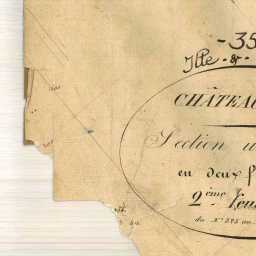 -35
Ille - & -
CHÂTEAU
Section u
en deux f
2ème feui
du Nº 525 au